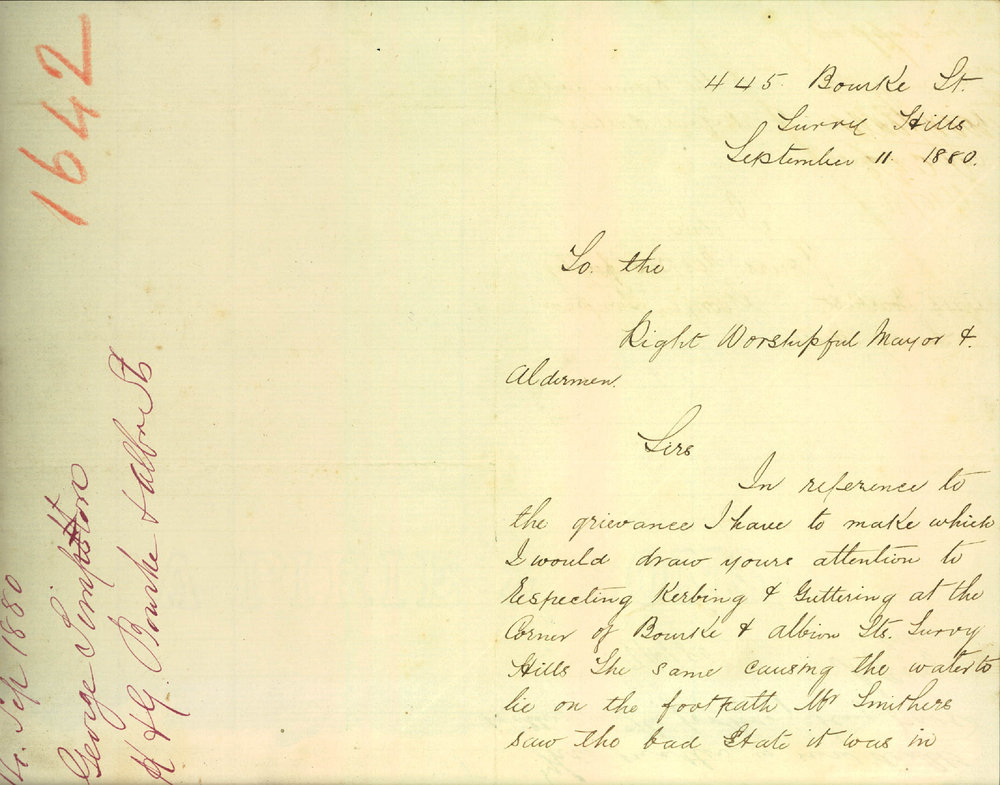 1642
14. Sep 1880
George Simpson
K & G Bourke & Albn St
445. Bourke St.
Surry Hills
September 11. 1880.
To. the
Right Worshipful Mayor &.
Aldermen.
Sirs
In reference to
the grievance I have to make which
I would draw yours attention to
Respecting Kerbing & Guttering at the
Corner of Bourke & albion Sts. Surry
Hills The same causing the water to
lie on the footpath Mr Smithers
saw the bad State it was in